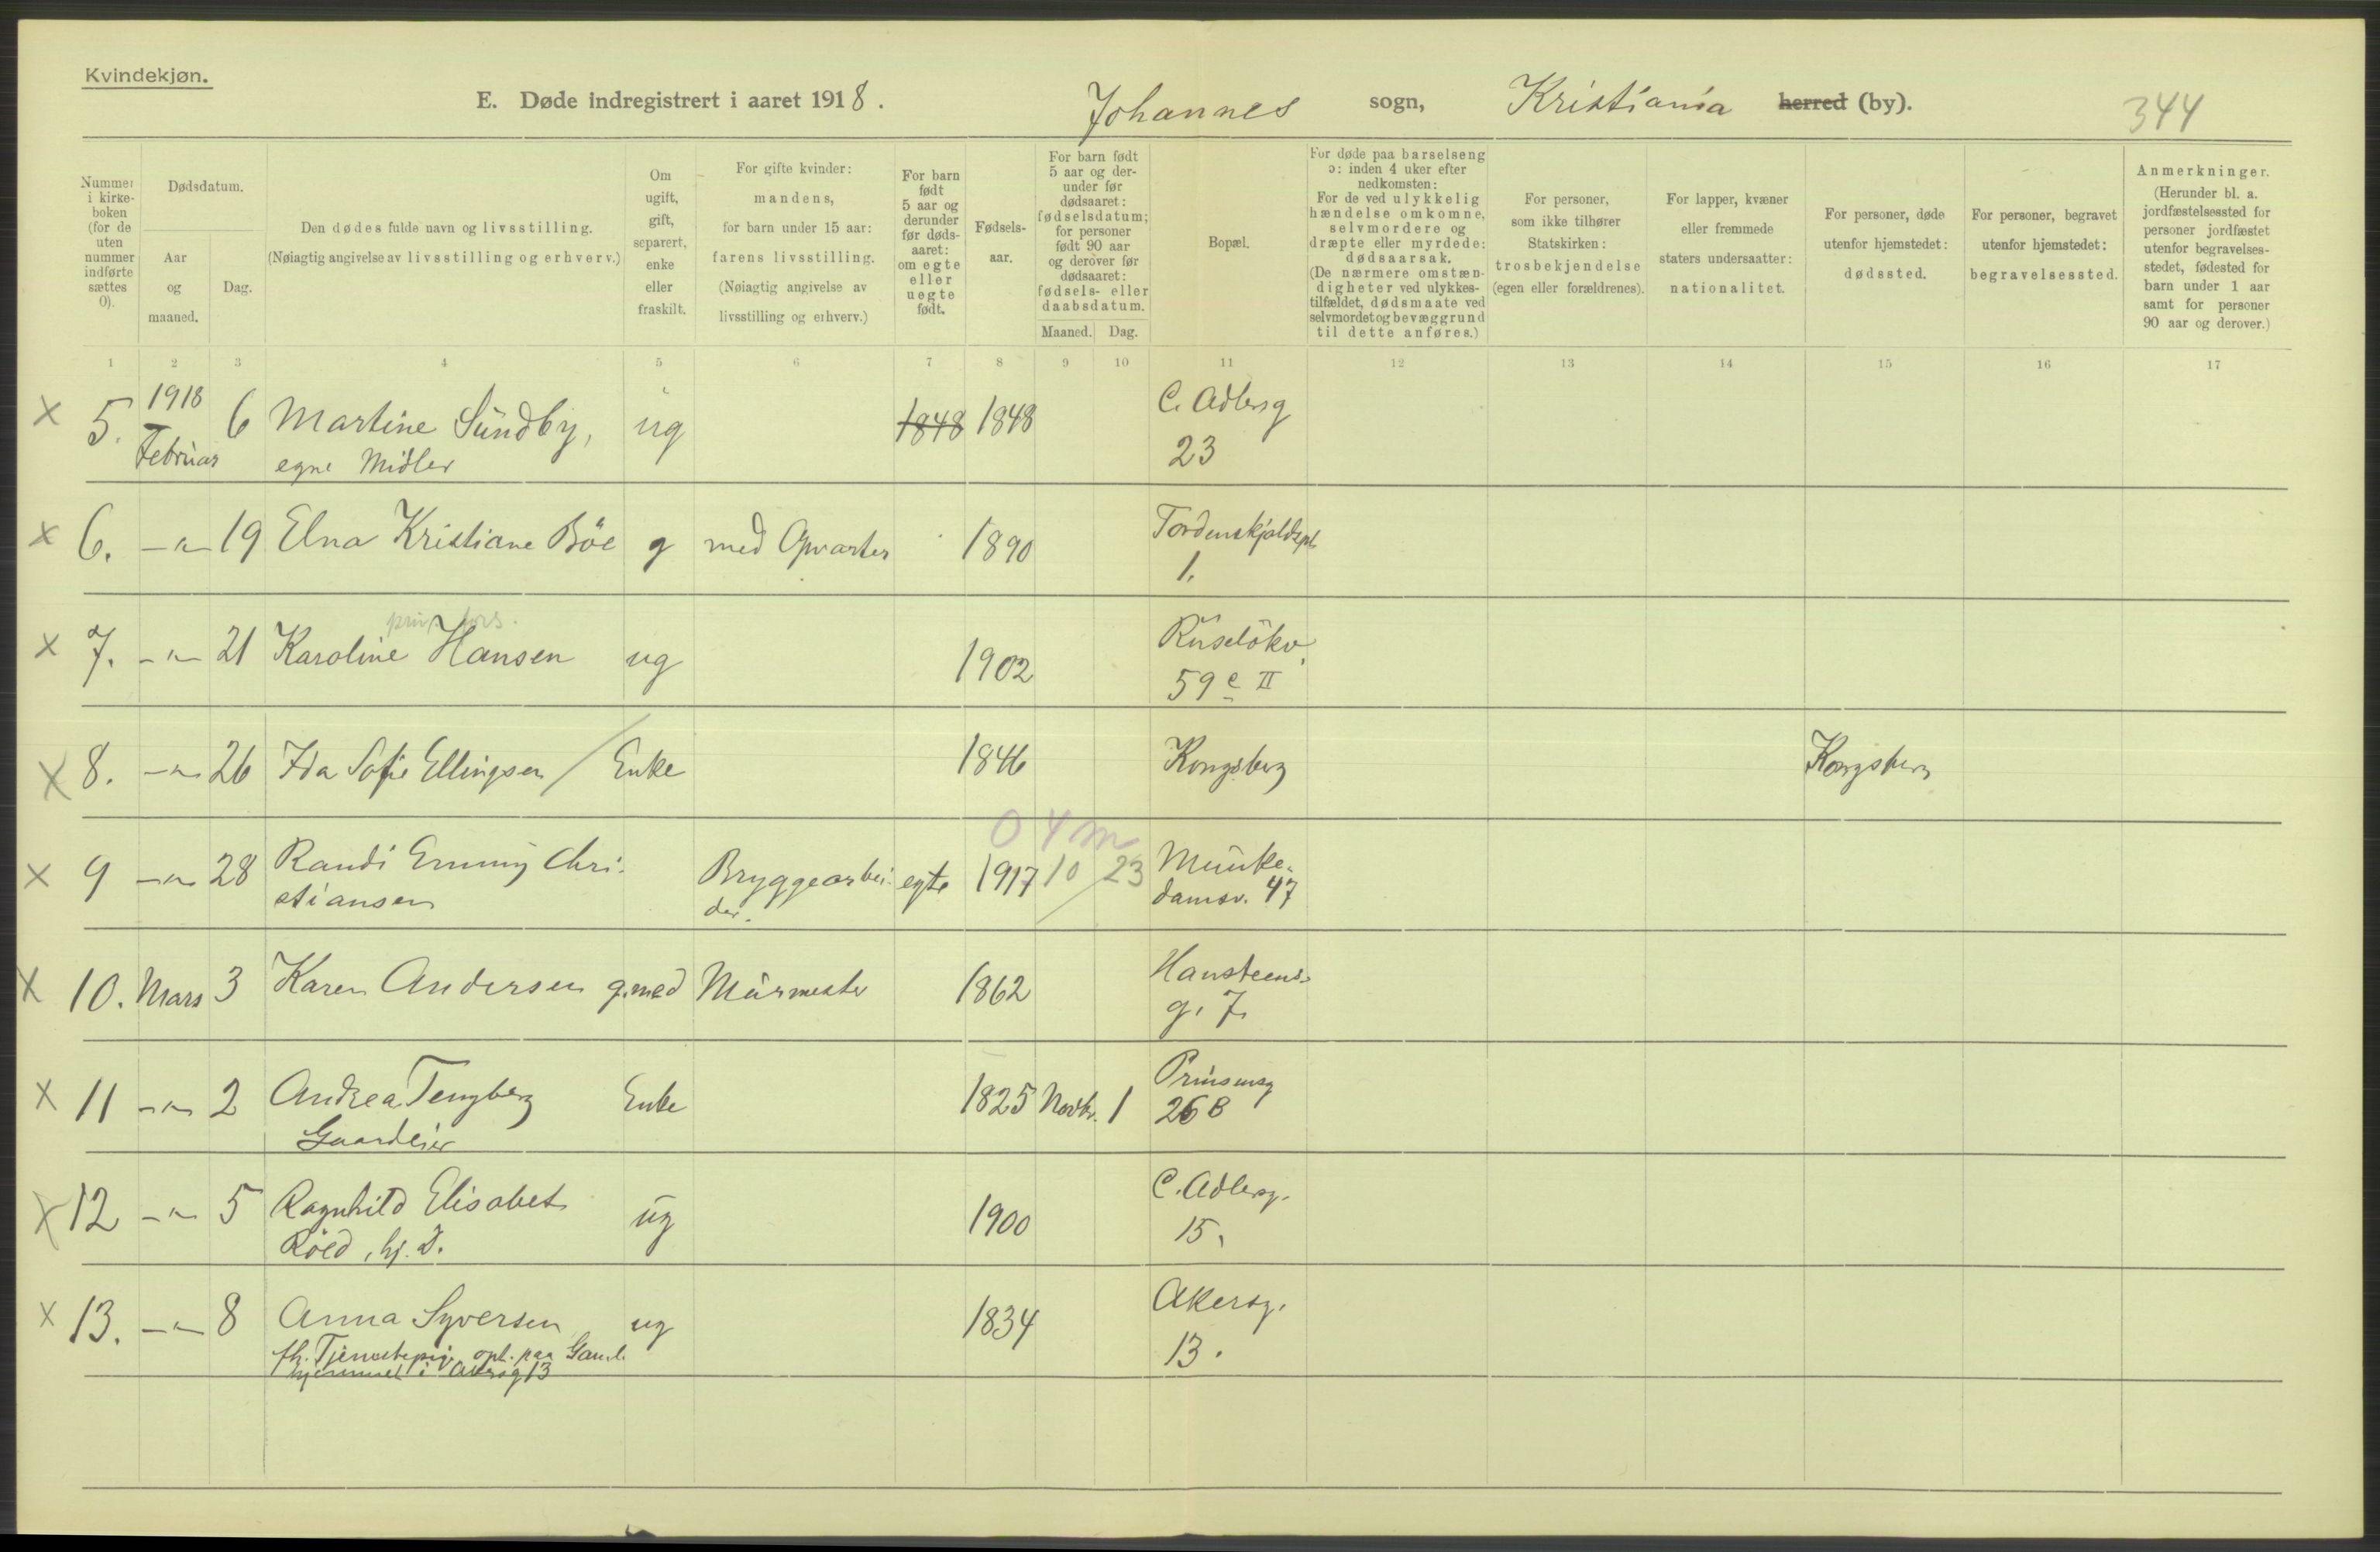 Kvindekjøn.
E. Døde indregistrert i aaret 1918. Johannes sogn, Kristiania herred (by). 344
Nummer i kirkeboken (for de uten nummer indførte sættes 0).
Dødsdatum.
Aar og maaned.
Dag.
Den dødes fulde navn og livsstilling.
(Nøiagtig angivelse av livsstilling og erhverv.)
Om ugift, gift, separert, enke eller fraskilt.
For gifte kvinder: mandens, for barn under 15 aar: farens livsstilling. (Nøiagtig angivelse av livsstilling og erhverv.)
For barn født 5 aar og derunder før dødsaaret: om egte eller uegte født.
Fødselsaar.
For barn født 5 aar og derunder før dødsaaret: fødselsdatum; for personer født 90 aar og derover før dødsaaret: fødsels- eller daabsdatum.
Maaned. Dag.
Bopæl.
For døde paa barselseng ɔ: inden 4 uker efter nedkomsten: For de ved ulykkelig hændelse omkomne, selvmordere og dræpte eller myrdede: dødsaarsak. (De nærmere omstændigheter ved ulykkestilfældet, dødsmaate ved selvmordet og bevæggrund til dette anføres.)
For personer, som ikke tilhører Statskirken: trosbekjendelse (egen eller forældrenes).
For lapper, kvæner eller fremmede staters undersaatter: nationalitet.
For personer, døde utenfor hjemstedet: dødssted.
For personer, begravet utenfor hjemstedet: begravelsessted.
Anmerkninger. (Herunder bl. a. jordfæstelsessted for personer jordfæstet utenfor begravelsesstedet, fødested for barn under 1 aar samt for personer 90 aar og derover.)
1 2 3 4 5 6 7 8 9 10 11 12 13 14 15 16 17
x 5. 1918 Februar 6 Martine Sundby, ug 1848 1848 C. Adlersg
egne Midler 23
x 6. -"- 19 Elna Kristiane Böe g med Opvarter 1890 Tordenskjoldspl.
1.
priv. fors.
x 7. -"- 21 Karoline Hansen ug 1902 Ruselökv.
59 c II
x 8. -"- 26 Ida Sofie Ellingsen / Enke 1846 Kongsberg Kongsberg
0 4 m
x 9 -"- 28 Randi Emmy Chri- Bryggearbei- egte 1917 10 / 23 Munke-
stiansen der. damsv. 47
x 10. Mars 3 Karen Andersen g. med Murmester 1862 Hansteens-
g. 7.
x 11 -"- 2 Andrea Tengberg Enke 1825 Novbr. 1 Prinsensg
Gaardeier 26 B
x 12 -"- 5 Ragnhild Elisabet ug 1900 C. Adlersg.
Röed, hj. D. 15.
x 13. -"- 8 Anna Syversen ug 1834 Akersg.
fh. Tjenestepige, opl. paa Gaml. 13.
hjemmet i Akersg 13